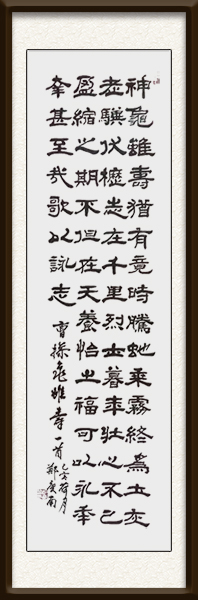 神龜雖壽猶有竟時騰虵乘霧終為土灰
老驥伏櫪志在千里烈士暮年壯心不已
盈縮之期不但在天養怡之福可以永年
幸甚至哉歌以詠志 曹操龜雖壽一首
乙亥荷月
鄭
南